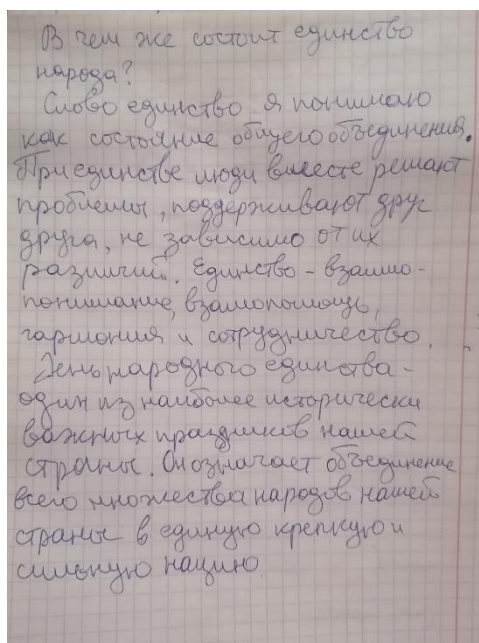 В чем же состоит единство
народа?
Слово единство я понимаю
как состояние общего объединения.
При единстве люди вместе решают
проблемы, поддерживают друг
друга, не зависимо от их
различий. Единство - взаимо-
понимание, взамопомощь,
гармония и сотрудничество.
День народного единства -
один из наиболее исторически
важных праздников нашей
страны. Он означает объединение
всего множества народов нашей
страны в единую крепкую и
сильную нацию